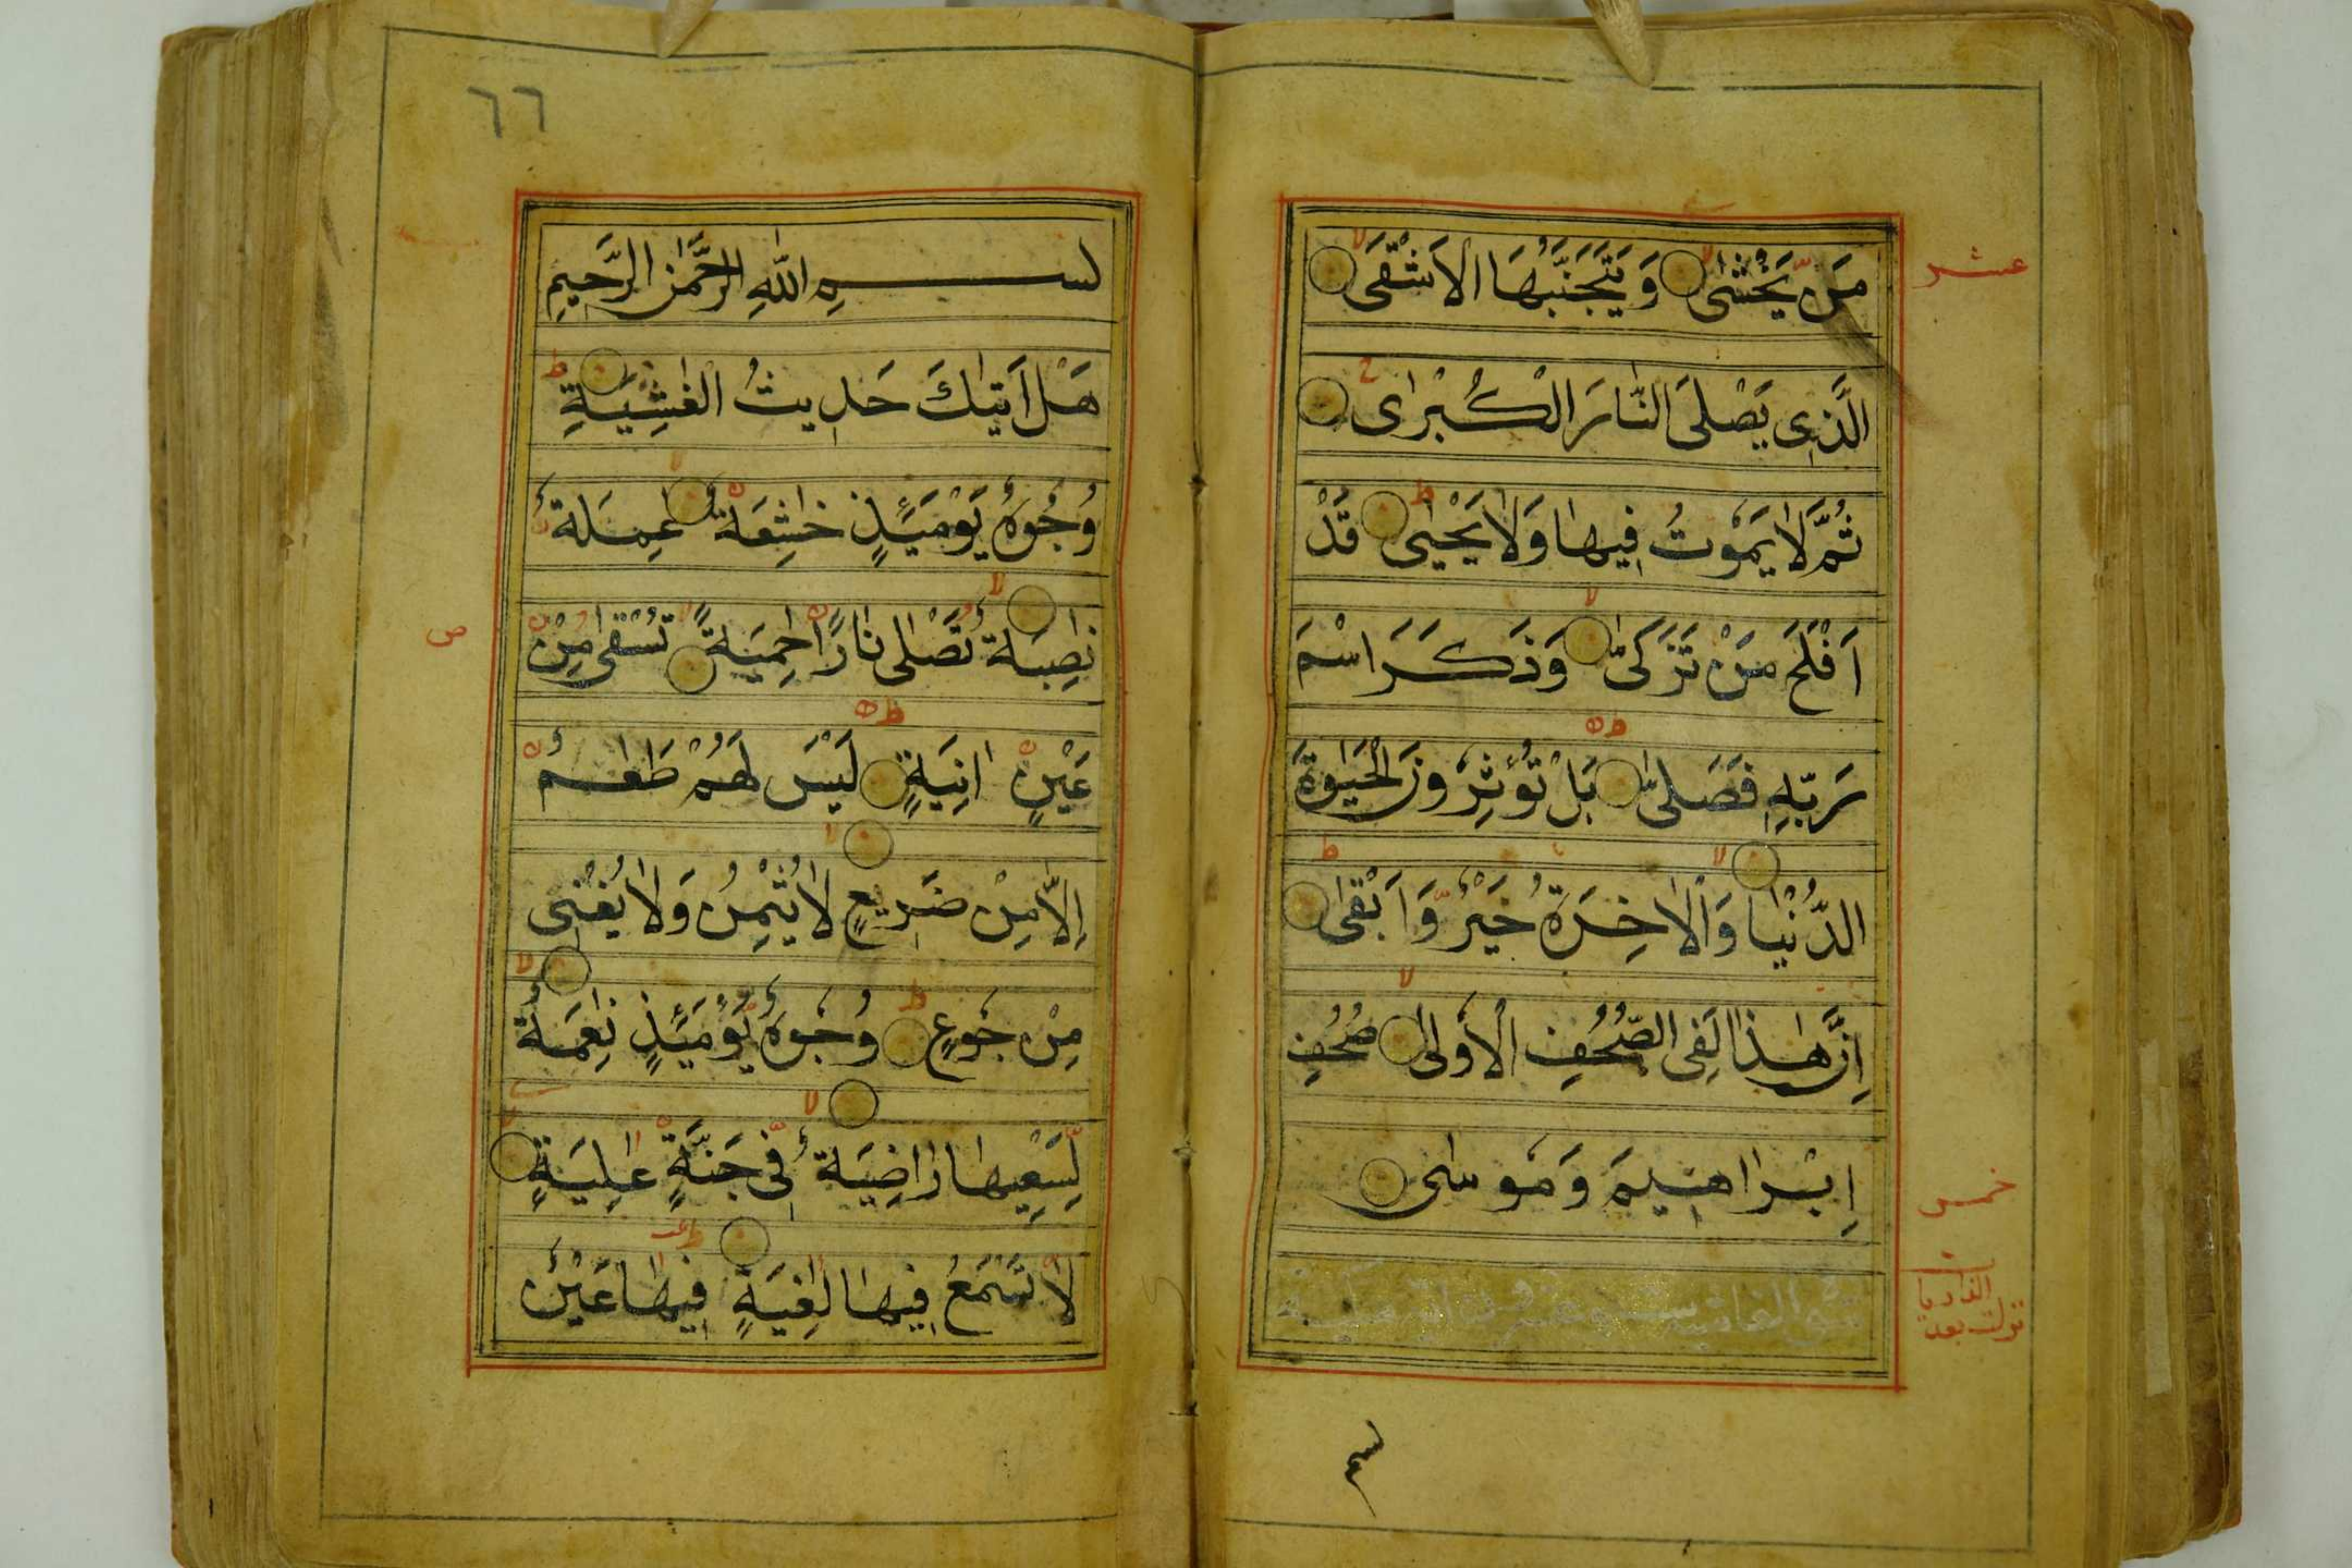 مَنْ يَّخْشٰى وَيَتَجَنَّبُهَا الْاَشْقَى
الَّذِى يَصْلَى النَّارَ الْكُبْرٰى
ثُمَّ لَا يَمُوْتُ فِيهَا وَلَا يَحْيٰى قَدْ
اَفْلَحَ مَنْ تَزَكّٰى وَذَكَرَ اسْمَ
رَبِّهٖ فَصَلّٰى بَلْ تُؤْثِرُونَ الْحَيٰوةَ
الدُّنْيَا وَالْاٰخِرَةُ خَيْرٌ وَّاَبْقٰى
اِنَّ هٰذَا لَفِى الصُّحُفِ الْاُولٰى صُحُفِ
اِبْرَاهِيمَ وَمُوسٰى
عشر
خمس
بسم
٦٦
بسم اللهِ الرَّحْمٰنِ الرَّحِيمِ
هَلْ اَتٰىكَ حَدِيثُ الْغٰشِيَةِ
وُجُوهٌ يَوْمَئِذٍ خٰشِعَةٌ عٰمِلَةٌ
نٰصِبَةٌ تَصْلٰى نَارًا حٰمِيَةً تُسْقٰى مِنْ
عَيْنٍ اٰنِيَةٍ لَيْسَ لَهُمْ طَعٰمٌ
اِلَّا مِنْ ضَرِيعٍ لَا يُسْمِنُ وَلَا يُغْنِى
مِنْ جُوْعٍ وُجُوْهٌ يَّوْمَئِذٍ نٰعِمَةٌ
لِّسَعْيِهَا رَاضِيَةٌ فِى جَنَّةٍ عٰلِيَةٍ
لَا تَسْمَعُ فِيهَا لٰغِيَةً فِيهَا عَيْنٌ
ص